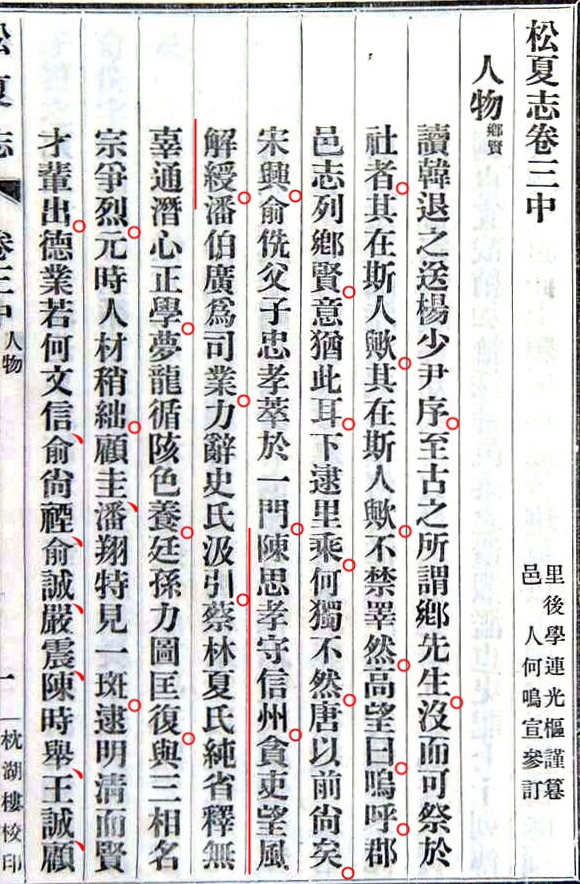 松夏志卷三中
里後學連光樞謹纂
邑 人何鳴宣參訂
人物鄉賢
讀韓退之送楊少尹序至古之所謂鄉先生沒而可祭於
社者其在斯人歟其在斯人歟不禁睪然高望曰嗚呼郡
邑志列鄉賢意猶此耳下逮里乘何獨不然唐以前尙矣
宋興俞侁父子忠孝萃於一門陳思孝守信州貪吏望風
解綬潘伯廣爲司業力辭史氏汲引蔡林夏氏純省釋無
辜通潛心正學夢龍循陔色養廷孫力圖匡復與三相名
宗爭烈元時人材稍絀顧圭潘翔特見一斑逮明淸而賢
才輩出德業若何文信俞尙禋俞誠嚴震陳時舉王誠顧
松夏志 卷三中 人物 一 枕湖樓校印